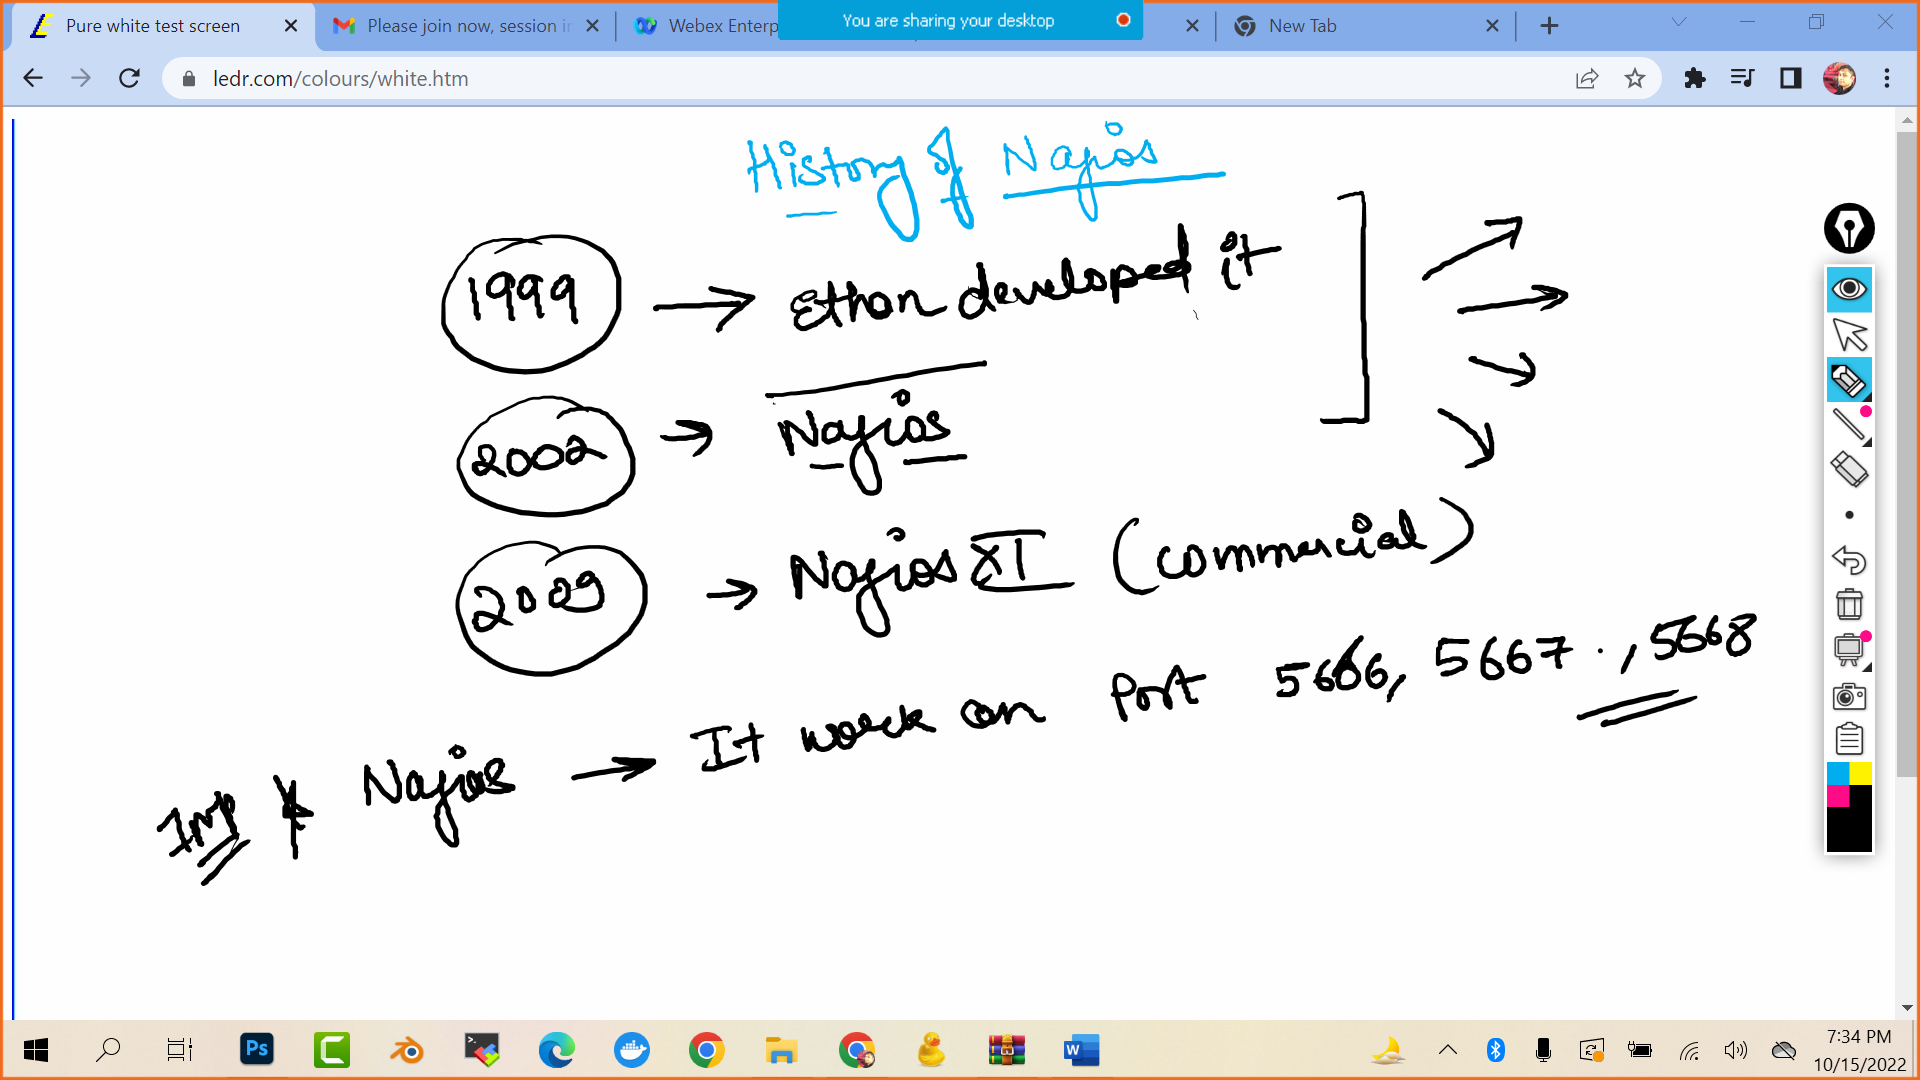 Pure white test screen
Please join now, session i
Webex Enterp
You are sharing your desktop
New Tab
ledr.com/colours/white.htm
History of Nagios
1999 → Ethan developed it
2002 → Nagios
2009 → Nagios XI (commercial)
Imp * Nagios → It work on Port 5666, 5667 . , 5668
Ps
C
W
7:34 PM
10/15/2022